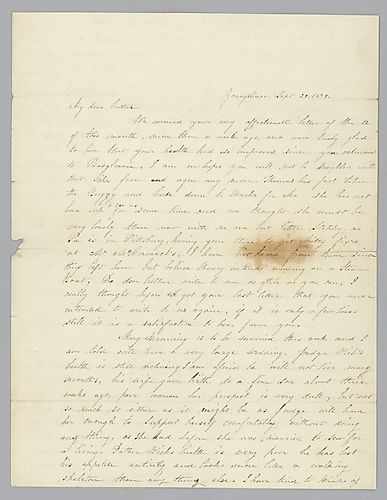 Youngstown Sept 20, 1839.
My dear brother
We received your very affectionate letter of the 12
of this month, more than a week ago, and were truly glad
to hear that your health had so improved since you returned
to Pennsylvania, I am in hopes you will not be troubled with
that fever and ague any more. Thomas has just taken
the Buggy and gone down to for she has not
been up for some time and we thought she must be
very lonely there now with no one but little as
Pa is in Pittsburg, having gone there to get fixed
at Mr McCormacks, I have not heard from them since
they left here but believe Henry intends running on a Steam
Boat, Do dear brother write to me as often as you can, I
really thought before I got your last letter that you never
intended to write to us again, if it is only a few lines
still it is a satisfaction to hear from you.
Mary is to be married this week and I
am told will have a very large wedding. Judge
health is still declining I am afraid he will not live many
months, his wife gave birth to a fine son about three
weeks ago, poor woman her prospect is very dull, but not
so much so either as it might be as Judge will leave
her enough to support herself comfortably without doing
any thing, as she had before she was married to sew for
a living. Father health is very poor he has lost
his appetite entirely and looks more like a walking
skeleton than any thing else. I have tried to think of